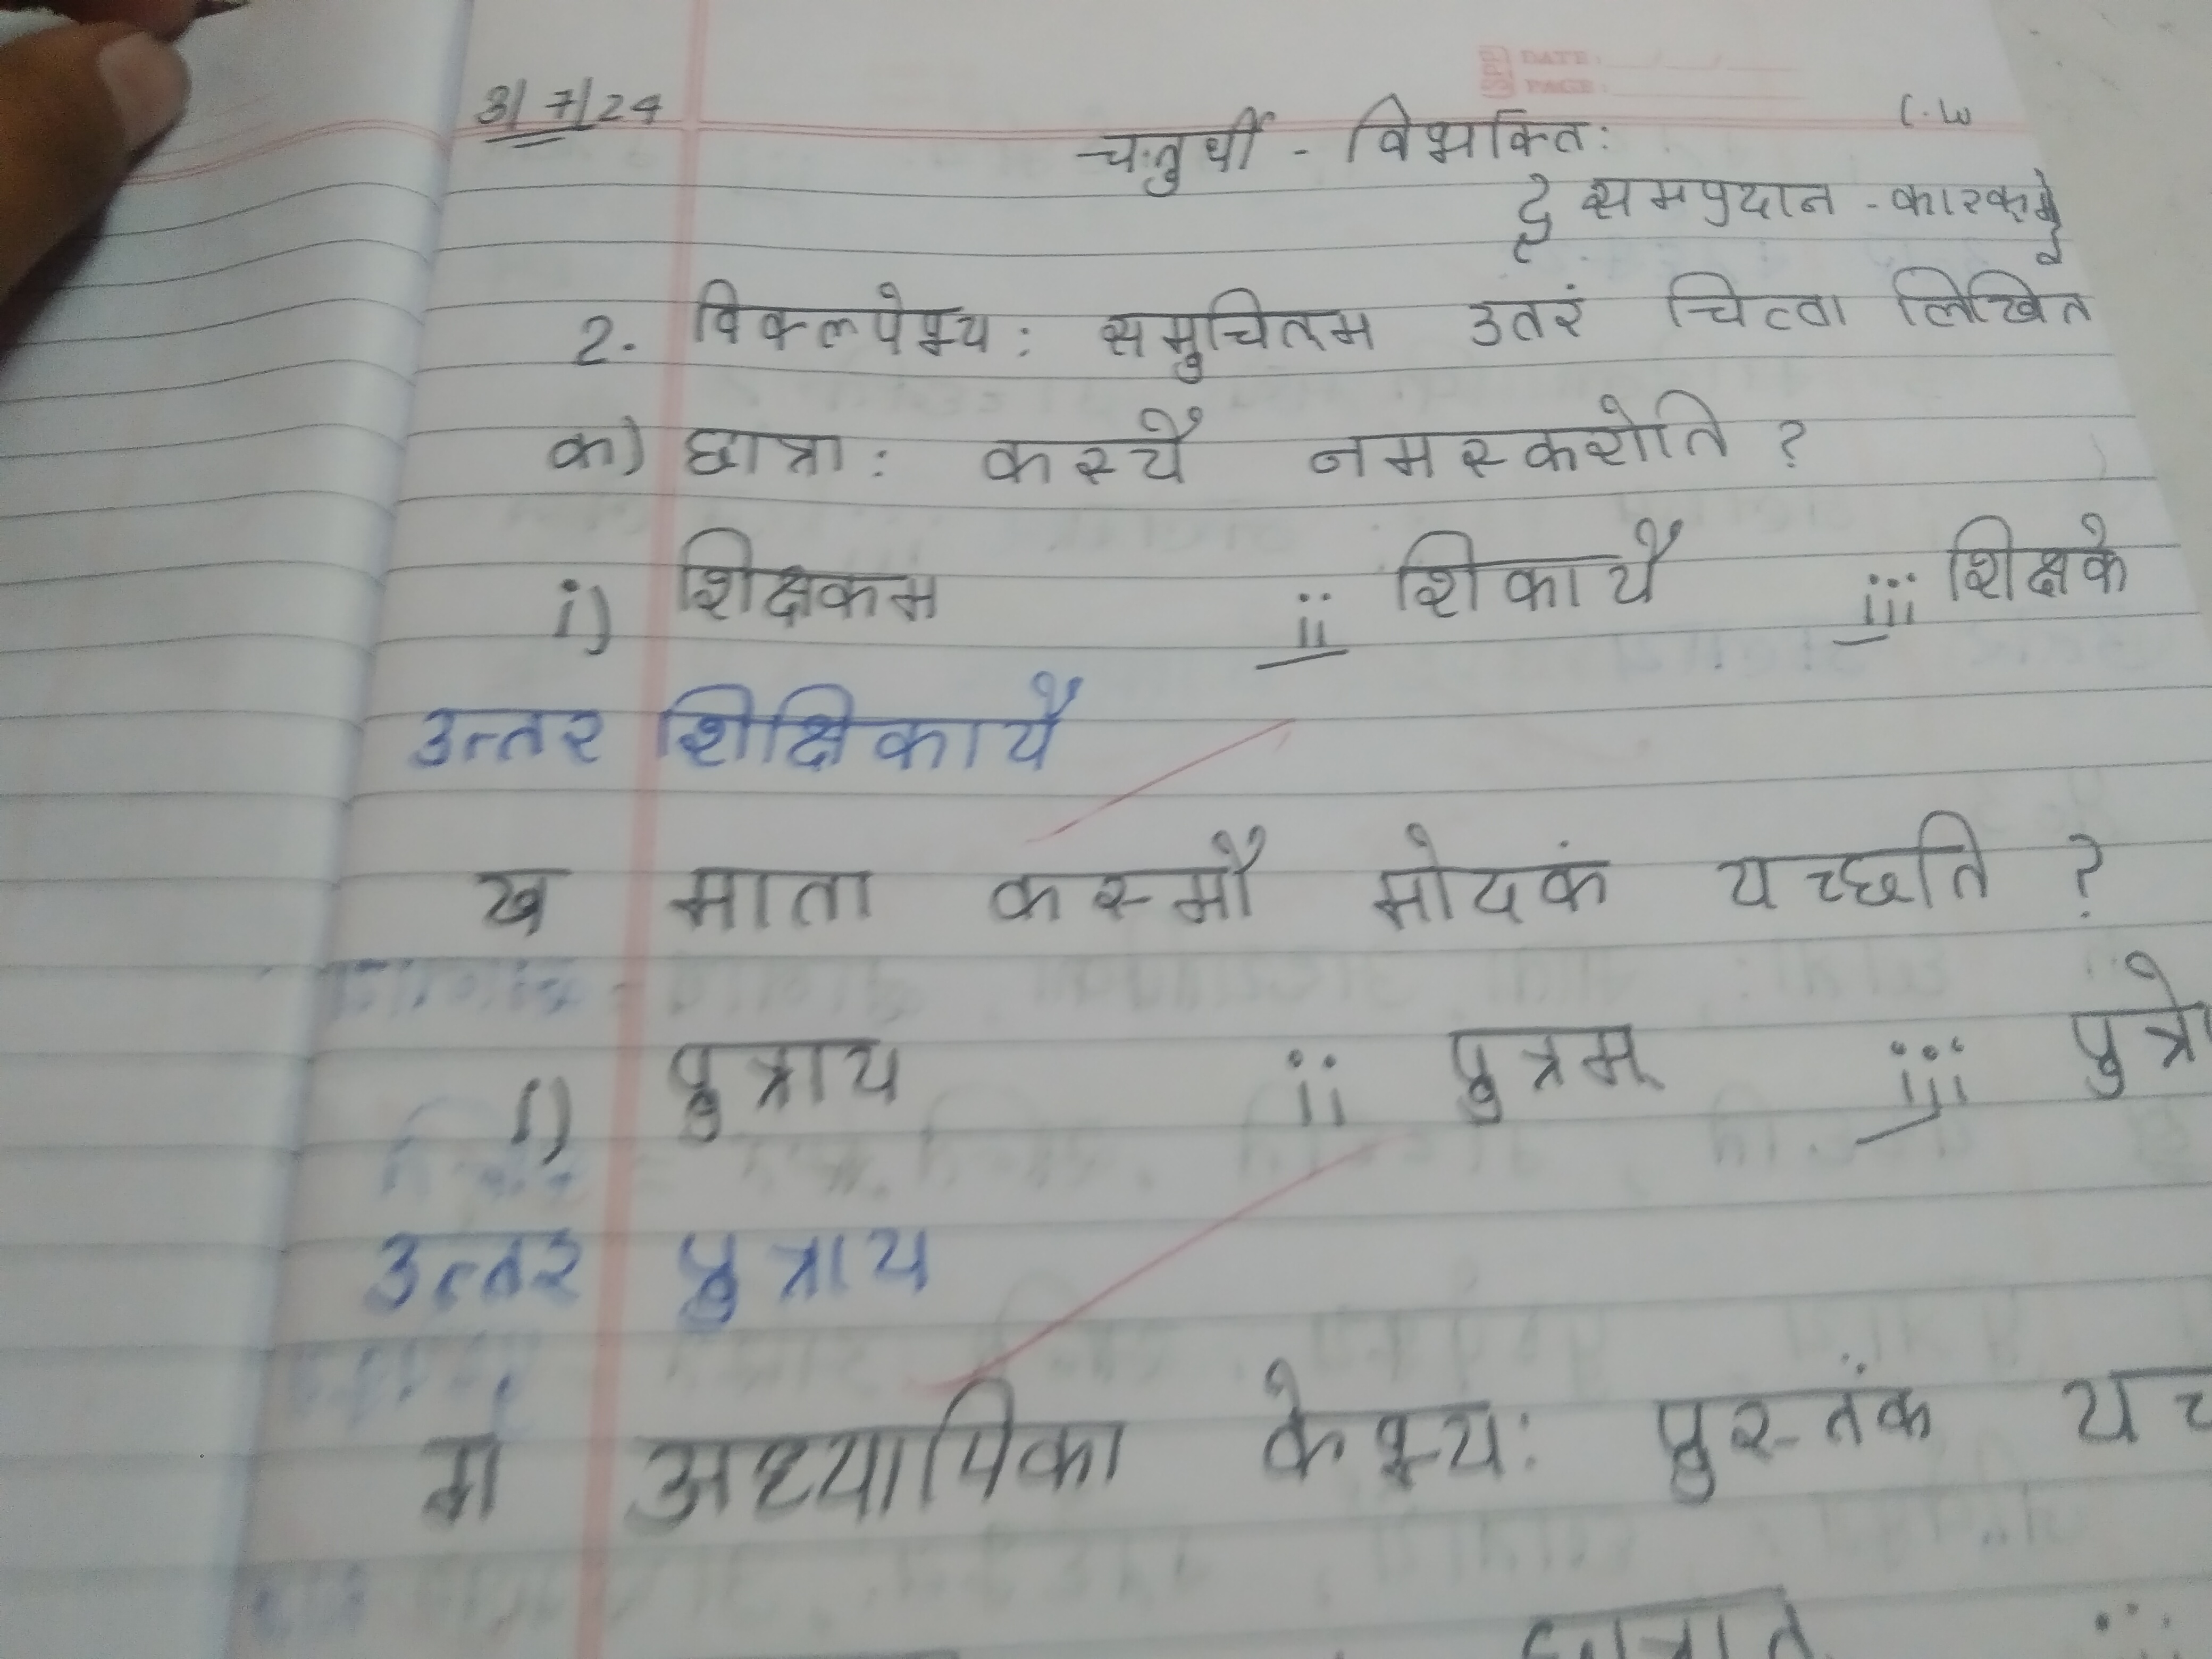 DATE: / /
PAGE:
3/7/24
C.W
चतुर्थी - विभक्तिः
समप्रदान - कारकम्
2. विकल्पेभ्य: समुचितम उतरं चित्वा लिखित
क) छात्रा: कस्यै नमस्करोति ?
i) शिक्षकम ii शिकायै iii शिक्षके
उत्तर शिक्षिकायै
ख माता कस्मौ मोदकं यच्छति ?
i) पुत्राय ii पुत्रम् iii
उत्तर पुत्राय
ग अध्यापिका केभ्य: पुस्तंक